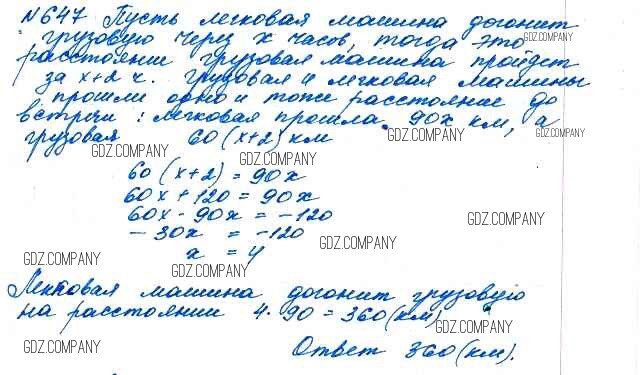 №647 Пусть легковая машина догонит
грузовую через x часов, тогда это
GDZ.COMPANY
расстояние грузовая машина пройдет
за x+2 ч. грузовая и легковая машины
GDZ.COMPANY
прошли одно и тоже расстояние до
встречи: легковая прошла 90x км, а
GDZ.COMPANY
грузовая 60(x+2) км
GDZ.COMPANY
GDZ.COMPANY
GDZ.COMPANY
60(x+2) = 90x
60x+120 = 90x
60x-90x = -120
GDZ.COMPANY
-30x = -120
GDZ.COMPANY
x = 4
GDZ.COMPANY
GDZ.COMPANY
Легковая машина догонит грузовую
на расстоянии 4·90 = 360(км)
GDZ.COMPANY
GDZ.COMPANY
GDZ.COMPANY
Ответ 360(км).